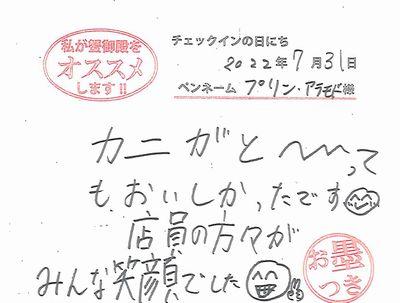 私が蟹御殿を
オススメ
します!!
チェックインの日にち
2022年7月31日
ペンネーム プリン・アラモド様
カニがと〜〜って
も、おいしかったです
店員の方々が
みんな笑顔でした
お墨
つき